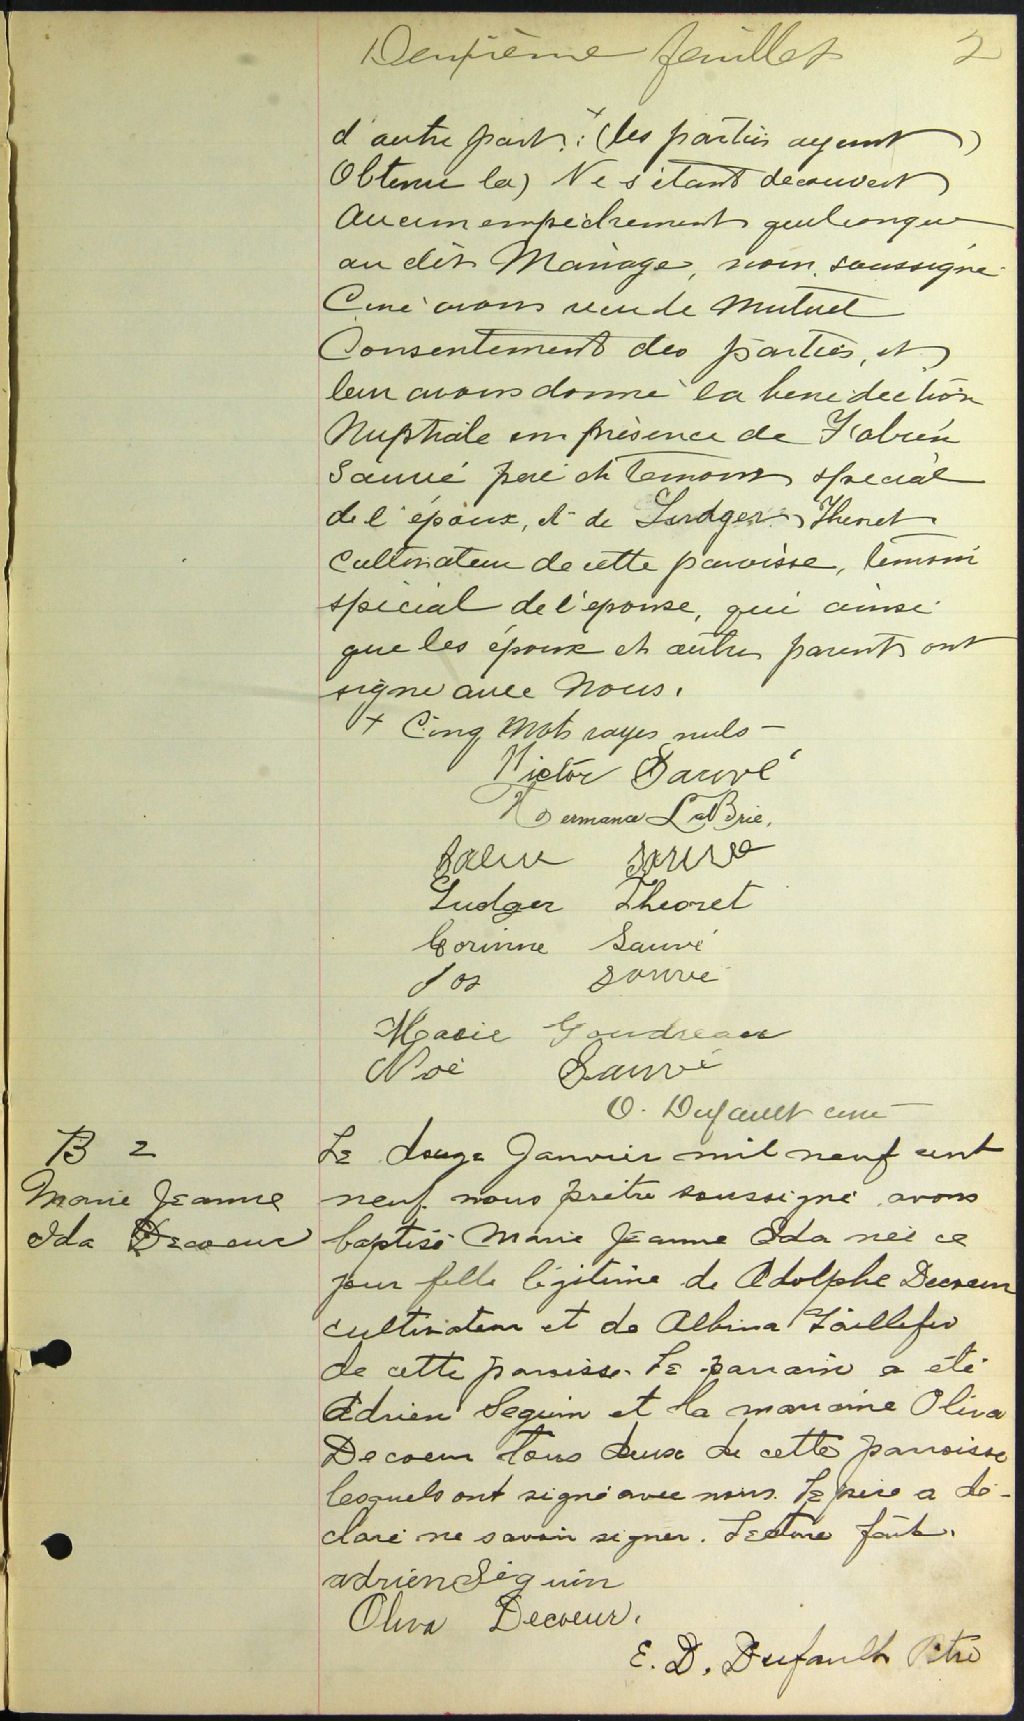 Deuxième feuillet 2
d'autre part. : (les parties ayant
Obtenu la) Ne s'étant découvert
Aucun empêchement quelconque
au dit Mariage, nous, soussigné
Curé avons reçu le Mutuel
Consentement des parties, et
leur avons donné la bénédiction
Nuptiale en présence de
Sauvé père et témoin spécial
de l'époux, et de Ludger Theoret
Cultivateur de cette paroisse, témoin
spécial de l'épouse, qui ainsi
que les époux et autres parents ont
signé avec Nous.
+ Cinq Mots rayés nuls –
Victor Sauvé
Hermance LaBrie.
Sauvé
Ludger Theoret
Corinne Sauvé
Jos Sauvé
Marie Goudreau
Noé Sauvé
O. Dufault curé
B 2
Marie Jeanne
Ida Decoeur
Le douze Janvier mil neuf cent
neuf nous prêtre soussigné avons
baptisé Marie Jeanne Ida née ce
jour fille légitime de Adolphe Decoeur
cultivateur et de Albina Taillefer
de cette paroisse. Le parrain a été
Adrien Seguin et la marraine Oliva
Decoeur tous deux de cette paroisse
lesquels ont signé avec nous. Le père a dé-
claré ne savoir signer. Lecture faite.
adrien Séguin
Oliva Decoeur.
E. D. Dufault Ptre